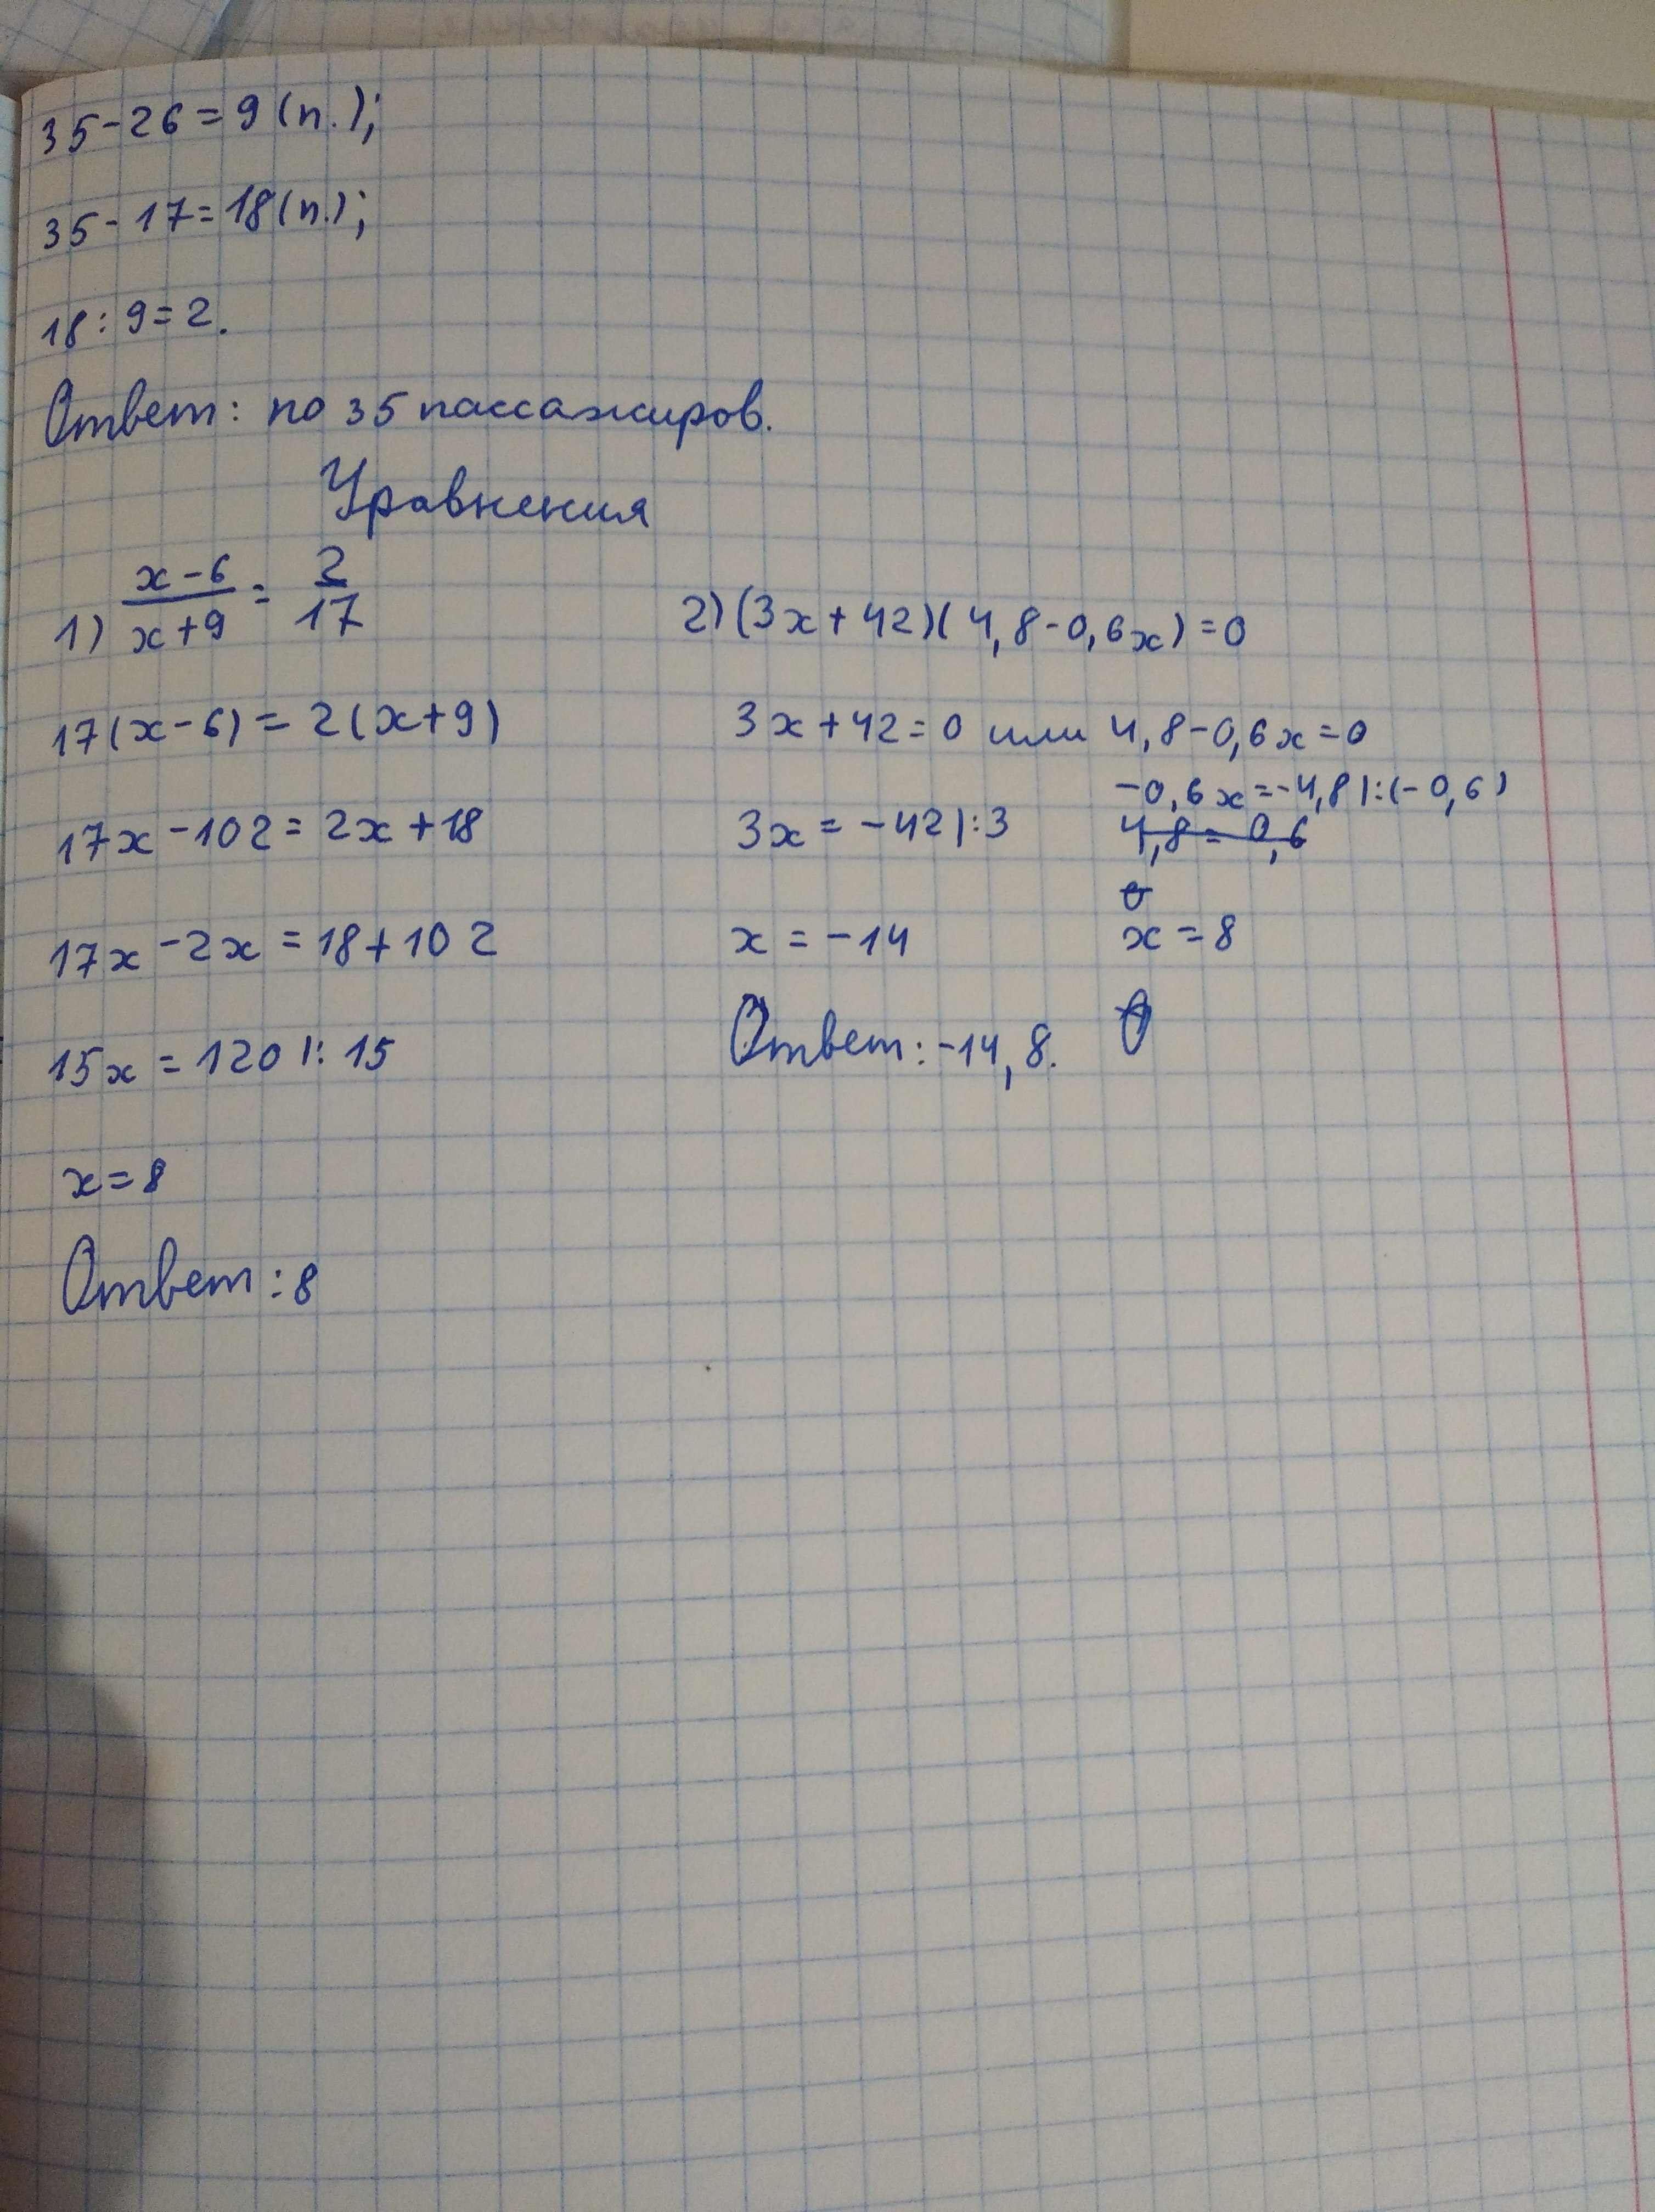 35-26=9(п.);
35-17=18(п.);
18:9=2.
Ответ: по 35 пассажиров.
Уравнения
1) (x-6)/(x+9) = 2/17
17(x-6)=2(x+9)
17x-102=2x+18
17x-2x=18+102
15x=120 |:15
x=8
Ответ:8
2)(3x+42)(4,8-0,6x)=0
3x+42=0 или 4,8-0,6x=0
3x=-42|:3
x=-14
Ответ:-14, 8.
-0,6x=-4,8|:(-0,6)
4,8=0,6
x=8